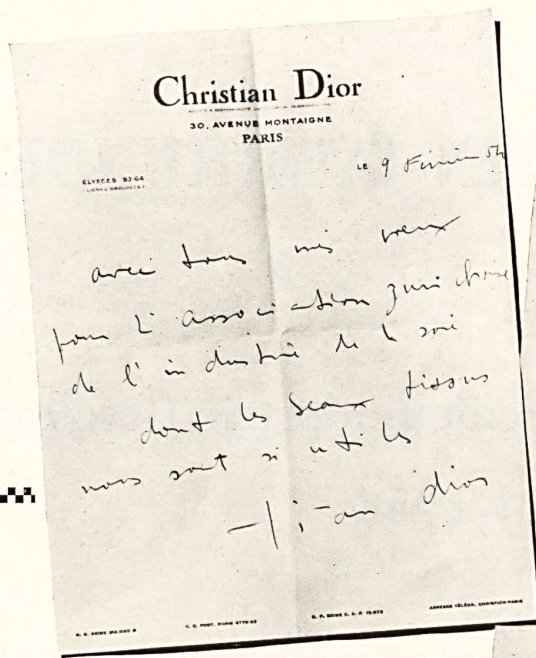 Christian Dior
30, AVENUE MONTAIGNE
PARIS
ÉLYSÉES 93-64
LE 9 Février 54
avec tous mes vœux
pour l'association zurichoise
de l'industrie de la soie
dont les beaux tissus
nous sont si utiles
dior
C. C. POST. PARIS
ADRESSE TÉLÉGR. CHRISTIOR-PARIS